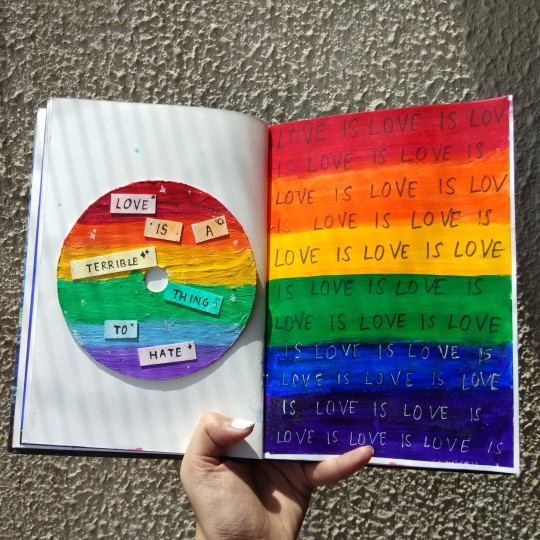 LOVE
IS A
TERRIBLE
THING
TO
HATE
LOVE IS LOVE IS LOV
IS LOVE IS LOVE IS
LOVE IS LOVE IS LOV
IS LOVE IS LOVE IS
LOVE IS LOVE IS LOVE
IS LOVE IS LOVE IS
LOVE IS LOVE IS LOVE
IS LOVE IS LOVE IS
LOVE IS LOVE IS LOVE
IS LOVE IS LOVE IS
LOVE IS LOVE IS LOVE IS